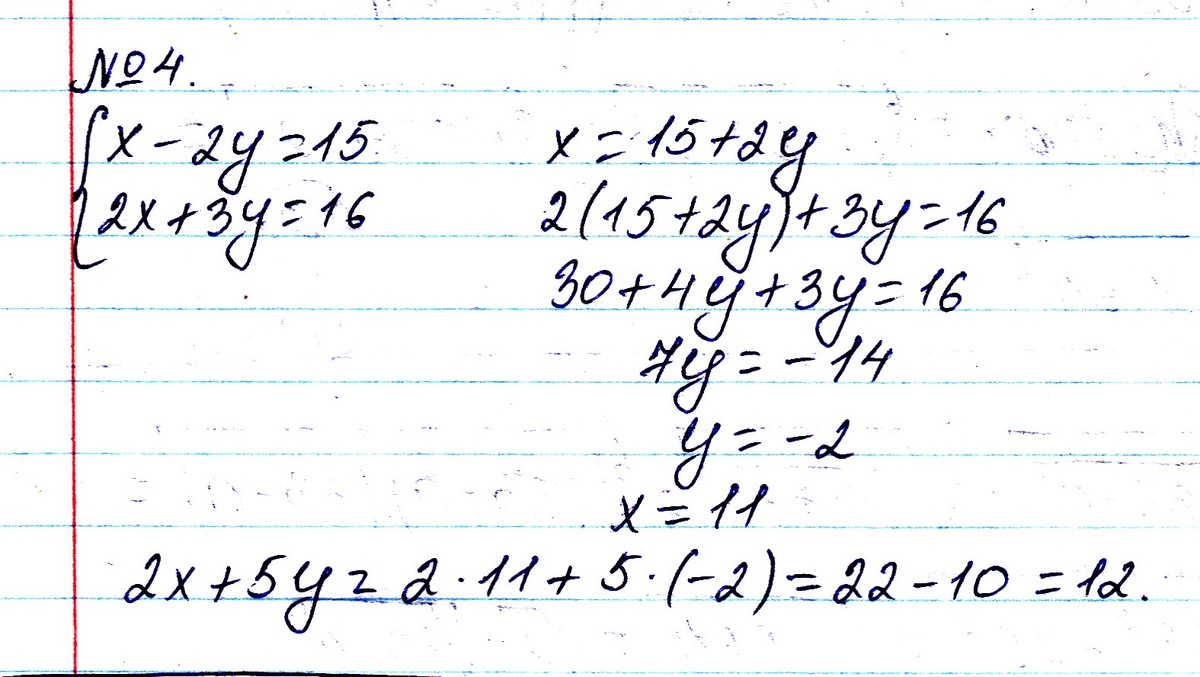 №4.
{ x - 2y = 15
2x + 3y = 16
x = 15 + 2y
2(15 + 2y) + 3y = 16
30 + 4y + 3y = 16
7y = -14
y = -2
x = 11
2x + 5y = 2 · 11 + 5 · (-2) = 22 - 10 = 12.